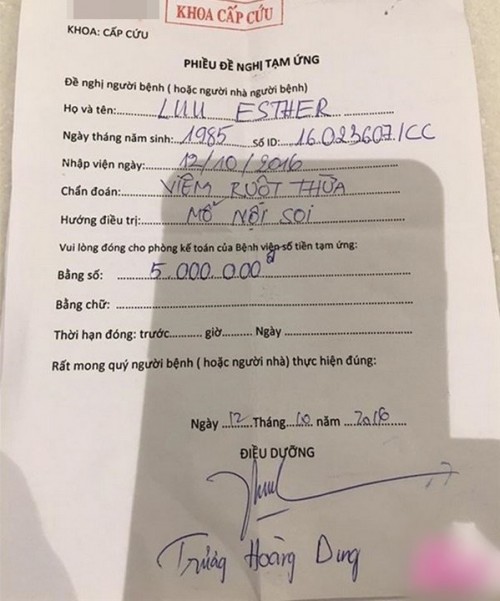 KHOA CẤP CỨU
KHOA: CẤP CỨU
PHIẾU ĐỀ NGHỊ TẠM ỨNG
Đề nghị người bệnh ( hoặc người nhà người bệnh)
Họ và tên: LUU ESTHER
Ngày tháng năm sinh: 1985 Số ID: 16.023607/CC
Nhập viện ngày: 12/10/2016
Chẩn đoán: VIÊM RUỘT THỪA
Hướng điều trị: MỔ NỘI SOI
Vui lòng đóng cho phòng kế toán của Bệnh viện số tiền tạm ứng:
Bằng số: 5.000.000đ
Bằng chữ:
Thời hạn đóng: trước........... giờ.......... Ngày
Rất mong quý người bệnh ( hoặc người nhà) thực hiện đúng:
Ngày 12 Tháng 10 năm 2016
ĐIỀU DƯỠNG
Hoàng Dung